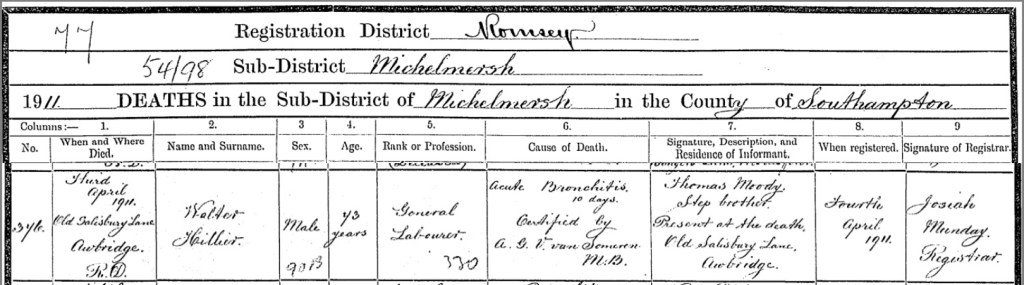 77
Registration District Romsey
54/98 Sub-District Michelmersh
1911. DEATHS in the Sub-District of Michelmersh in the County of Southampton
Columns:— 1. 2. 3 4. 5. 6. 7. 8. 9
No. When and Where Died. Name and Surname. Sex. Age. Rank or Profession. Cause of Death. Signature, Description, and Residence of Informant. When registered. Signature of Registrar.
Third
April
1911.
Old Salisbury Lane
Awbridge.
R.D.
Walter
Hillier.
Male
73
years
General
Labourer.
330
Acute Bronchitis.
10 days.
Certified by
A. G. V. van Someren
M.B.
Thomas Moody.
Step brother.
Present at the death.
Old Salisbury Lane.
Awbridge.
Fourth
April
1911.
Josiah
Munday.
Registrar.